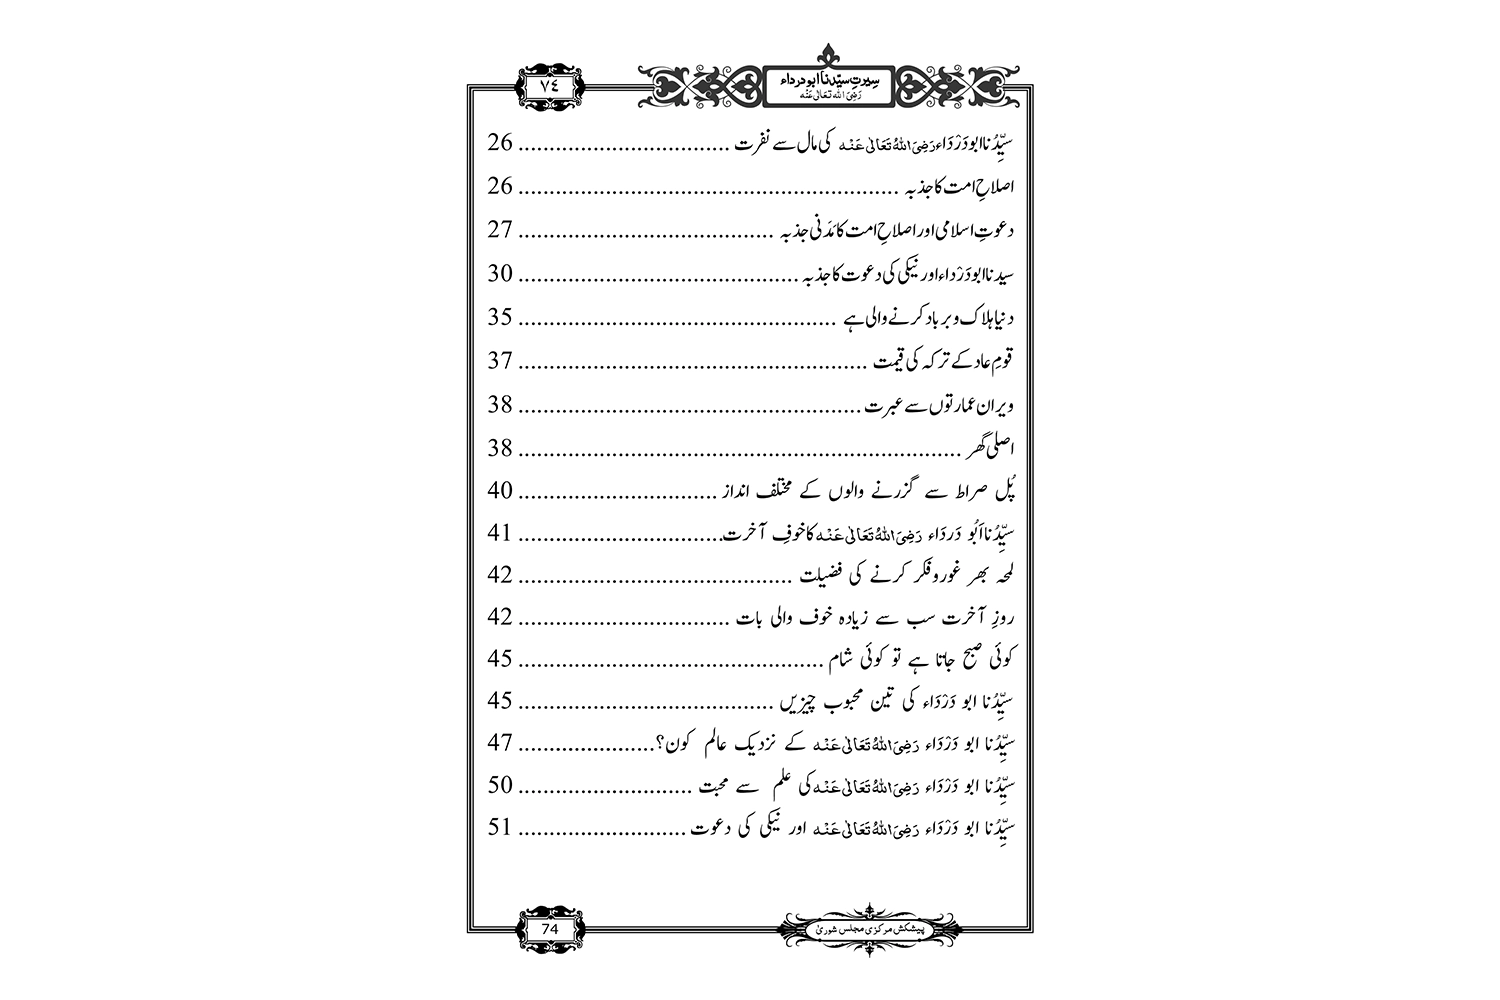 ٧٤
سِیرتِ سیّدنا ابو درداء
رَضِیَ اللّٰہ تَعَالٰی عَنْہ
سیِّدُنا ابو دَرْدَاء رَضِیَ اللّٰہُ تَعَالٰی عَنْہ کی مال سے نفرت .............................. 26
اصلاحِ امت کا جذبہ ...................................................... 26
دعوتِ اسلامی اور اصلاحِ امت کا مَدَنی جذبہ .................................... 27
سیدنا ابو دَرْداء اور نیکی کی دعوت کا جذبہ ........................................ 30
دنیا ہلاک و برباد کرنے والی ہے ............................................. 35
قومِ عاد کے ترکہ کی قیمت .................................................. 37
ویران عمارتوں سے عبرت ................................................. 38
اصلی گھر ............................................................... 38
پُل صراط سے گزرنے والوں کے مختلف انداز ............................ 40
سیِّدُنا اَبُو دَردَاء رَضِیَ اللّٰہُ تَعَالٰی عَنْہ کا خوفِ آخرت............................. 41
لمحہ بھر غور و فکر کرنے کی فضیلت ....................................... 42
روزِ آخرت سب سے زیادہ خوف والی بات .............................. 42
کوئی صبح جاتا ہے تو کوئی شام ............................................ 45
سیِّدُنا ابو دَرْدَاء کی تین محبوب چیزیں .................................... 45
سیِّدُنا ابو دَرْدَاء رَضِیَ اللّٰہُ تَعَالٰی عَنْہ کے نزدیک عالم کون؟.................... 47
سیِّدُنا ابو دَرْدَاء رَضِیَ اللّٰہُ تَعَالٰی عَنْہ کی علم سے محبت ......................... 50
سیِّدُنا ابو دَرْدَاء رَضِیَ اللّٰہُ تَعَالٰی عَنْہ اور نیکی کی دعوت ........................ 51
پیشکش مرکزی مجلس شوریٰ
74